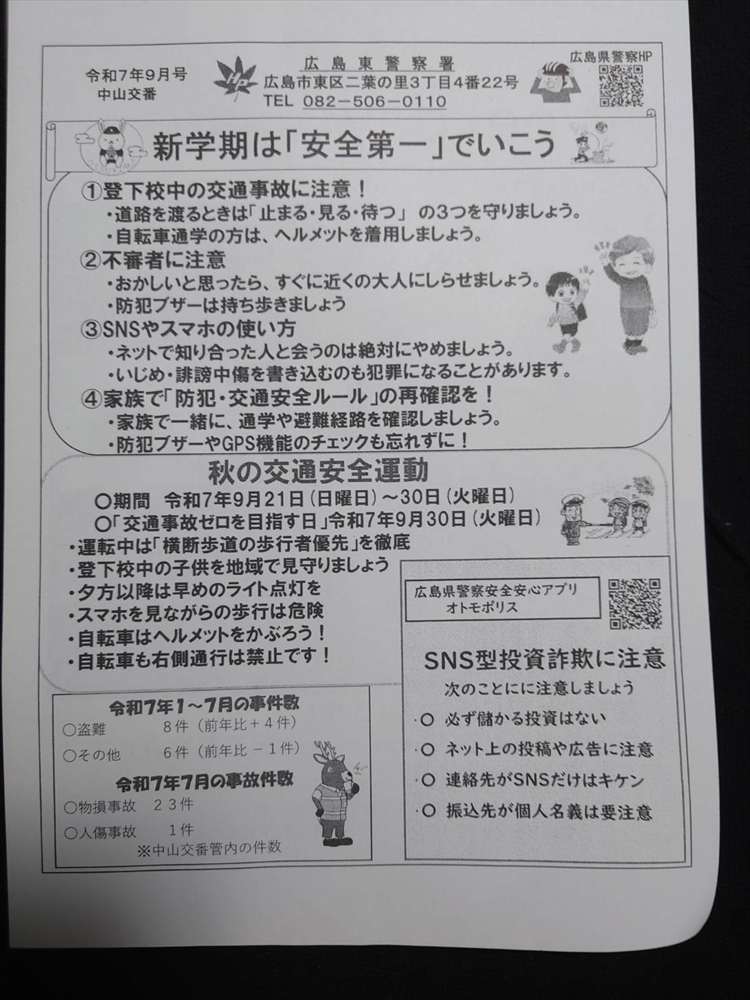 令和7年9月号
中山交番
HP
広島東警察署
広島市東区二葉の里3丁目4番22号
TEL 082-506-0110
広島県警察HP
新学期は「安全第一」でいこう
①登下校中の交通事故に注意！
・道路を渡るときは「止まる・見る・待つ」 の3つを守りましょう。
・自転車通学の方は、ヘルメットを着用しましょう。
②不審者に注意
・おかしいと思ったら、すぐに近くの大人にしらせましょう。
・防犯ブザーは持ち歩きましょう
③SNSやスマホの使い方
・ネットで知り合った人と会うのは絶対にやめましょう。
・いじめ・誹謗中傷を書き込むのも犯罪になることがあります。
④家族で「防犯・交通安全ルール」の再確認を！
・家族で一緒に、通学や避難経路を確認しましょう。
・防犯ブザーやGPS機能のチェックも忘れずに！
秋の交通安全運動
○期間 令和7年9月21日(日曜日)～30日(火曜日)
○「交通事故ゼロを目指す日」令和7年9月30日(火曜日)
・運転中は「横断歩道の歩行者優先」を徹底
・登下校中の子供を地域で見守りましょう
・夕方以降は早めのライト点灯を
・スマホを見ながらの歩行は危険
・自転車はヘルメットをかぶろう！
・自転車も右側通行は禁止です！
令和7年1～7月の事件数
○盗難 8件（前年比＋4件）
○その他 6件（前年比－1件）
令和7年7月の事故件数
○物損事故 23件
○人傷事故 1件
※中山交番管内の件数
広島県警察安全安心アプリ
オトモポリス
SNS型投資詐欺に注意
次のことにに注意しましょう
・○ 必ず儲かる投資はない
・○ ネット上の投稿や広告に注意
・○ 連絡先がSNSだけはキケン
・○ 振込先が個人名義は要注意